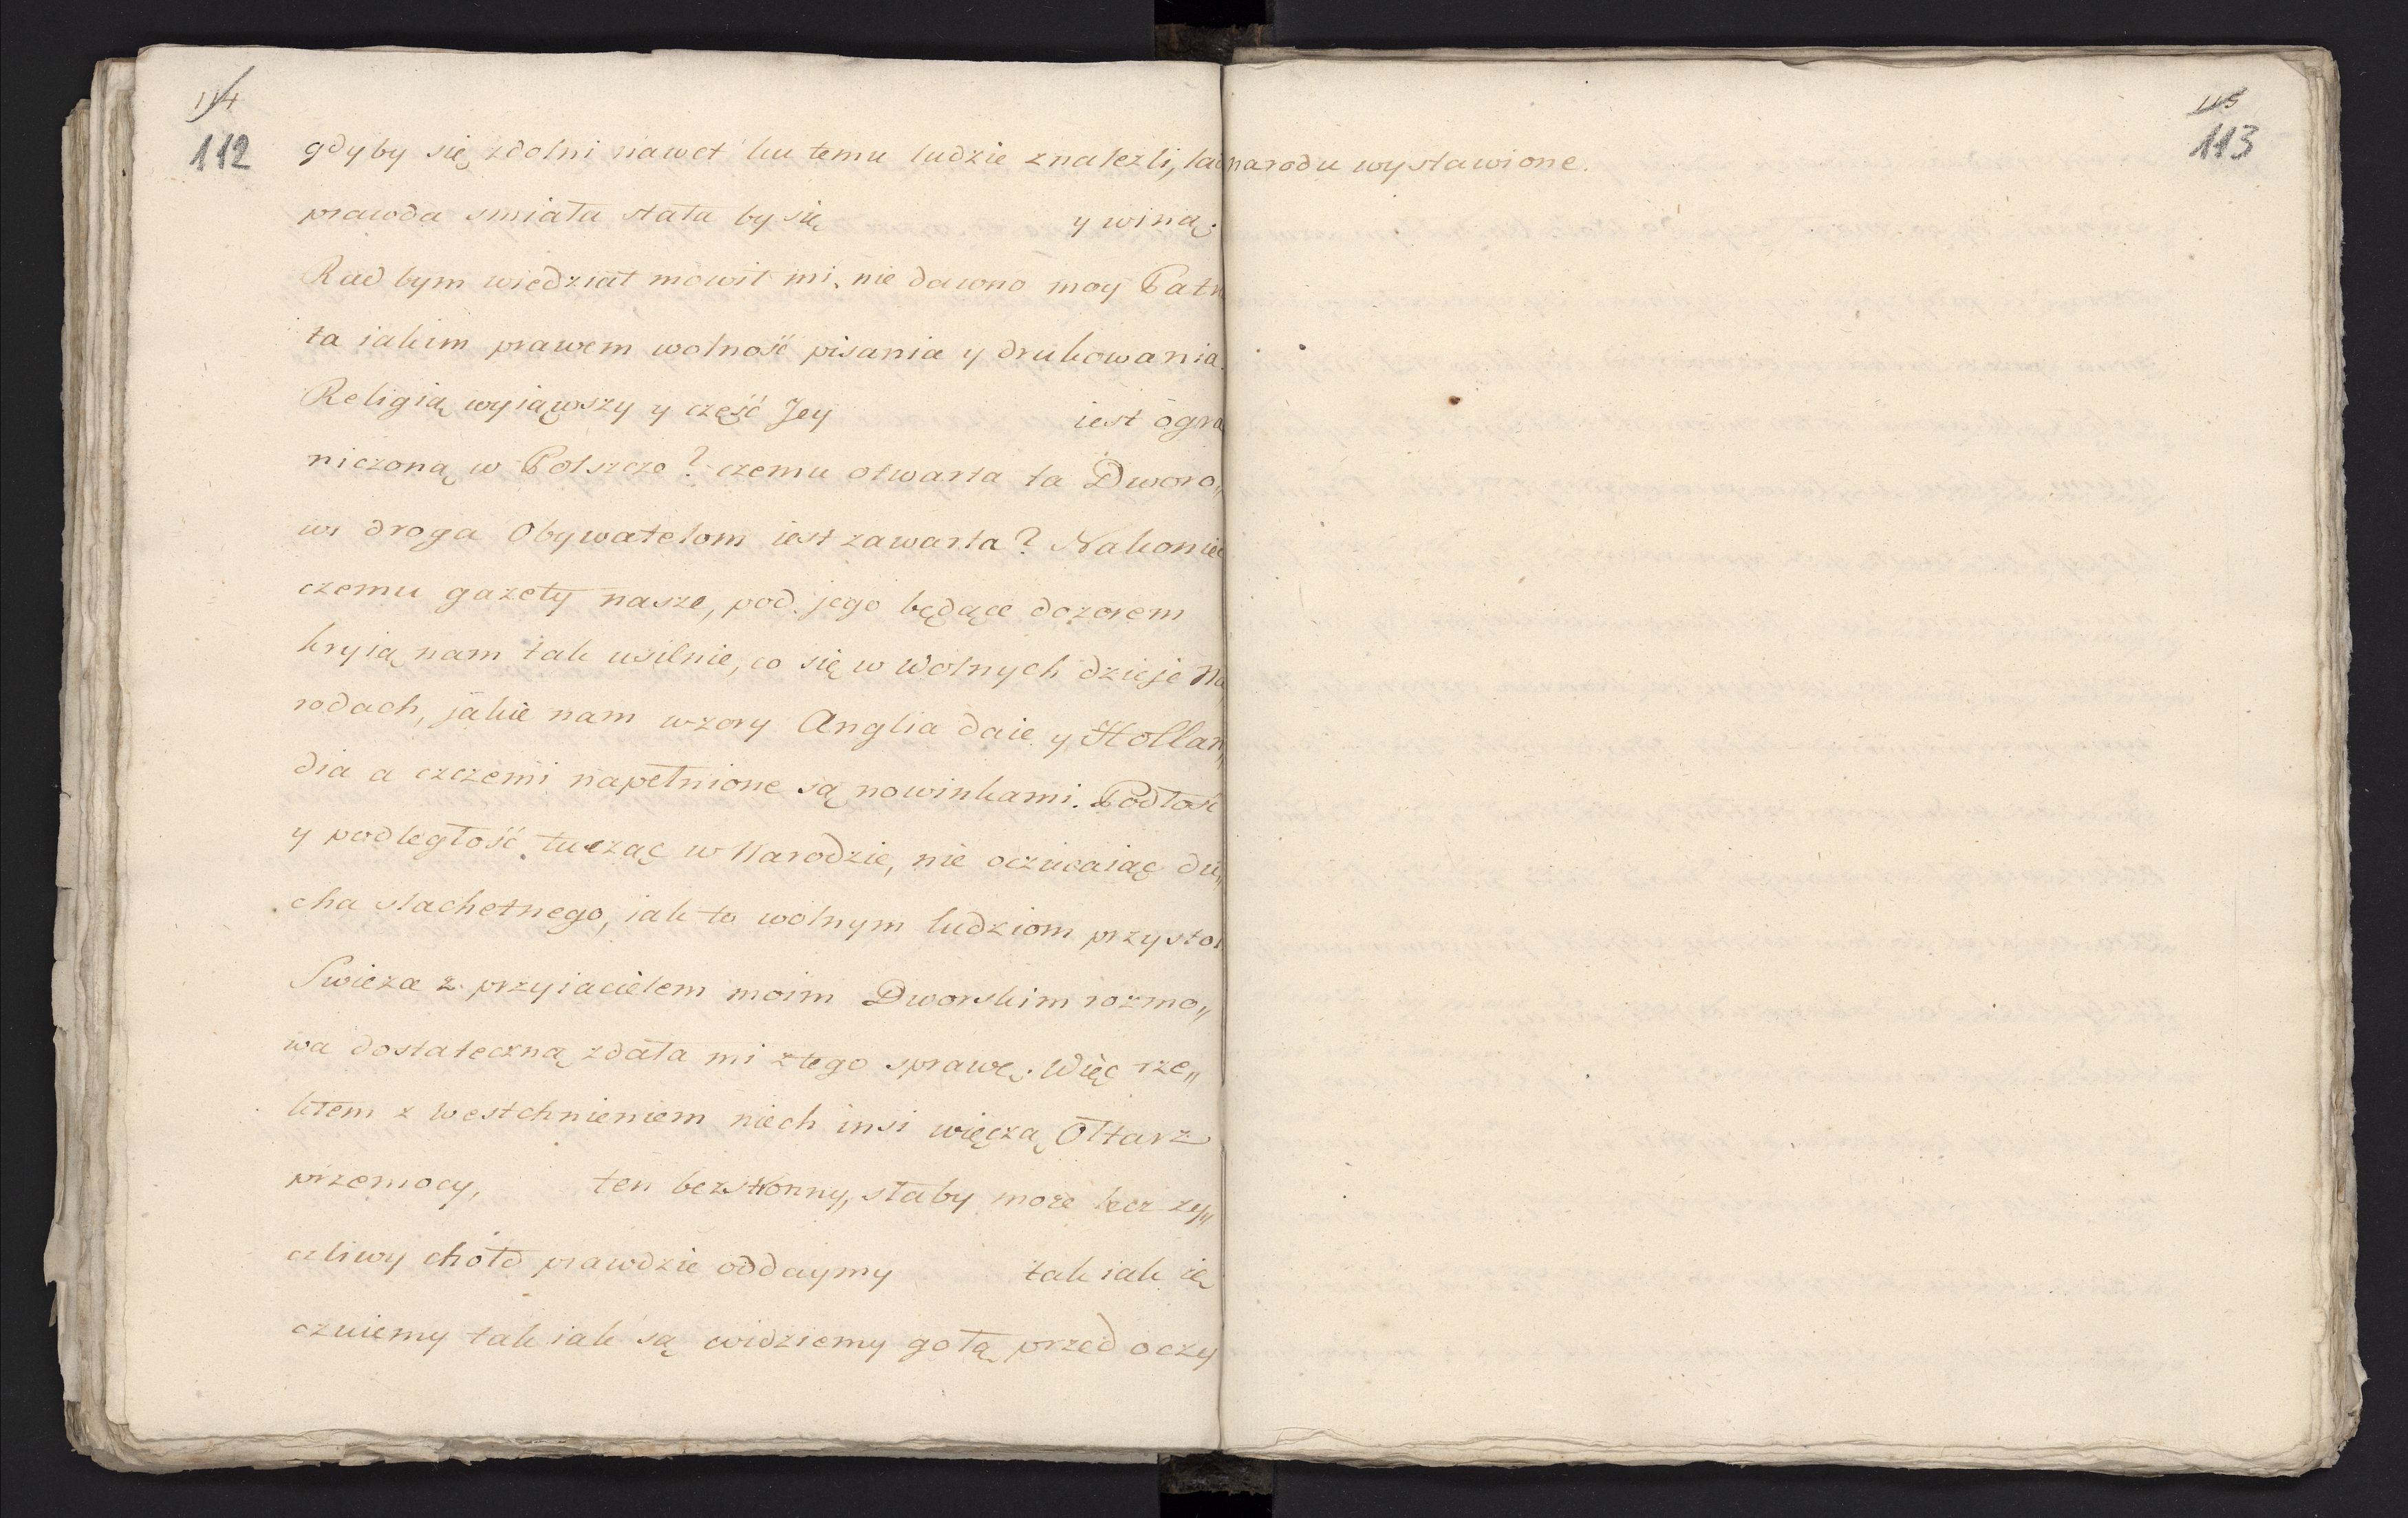 114
112
gdyby się zdolni nawet ku temu ludzie znalezli,
prawda smiała stała by się y winą.
Rad bym wiedział mówił mi, nie dawno moy Patr
ta iakim prawem wolność pisania y drukowania
Religią wyiąwszy y część Jey iest ogra
niczoną w Polszcze? czemu otwarta ta Dworo„
wi droga Obywatelom iest zawarta? Nakoniec
czemu gazety nasze, pod jego będące dozorem
kryią nam tak usilnie, co się w Wolnych dzieje Na
rodach, jakie nam wzory Anglia daie y Hollan„
dia a czczemi napełnione są nowinkami. Podłość
y podległość tucząc w Narodzie, nie oczucaiąc du„
cha slachetnego, iak to wolnym ludziom przystoi
Swieża z przyiacielem moim Dworskim rozmo„
wa dostateczną zdała mi z tego sprawę. Więc rze„
kłem z westchnieniem niech insi więczą Ołtarz
przemocy, ten bezstronny, słaby może lecz zy„
czliwy chołd prawdzie oddaymy tak iak ię
czuiemy tak iak są widziemy gołą przed oczy
115
113
narodu wystawione.